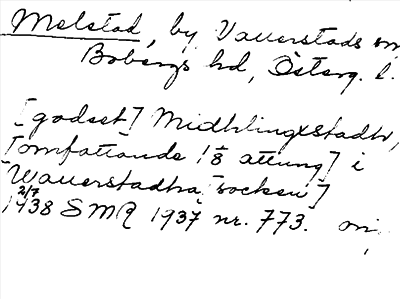 Melstad, by Vauerstads sn
Bobergs hd, Österg. l.
[godset] Midhlingxstadhr,
[omfattande 1/8 attung] i
Wauerstadha [socken]
2/7 1438 SMR 1937 nr. 773.